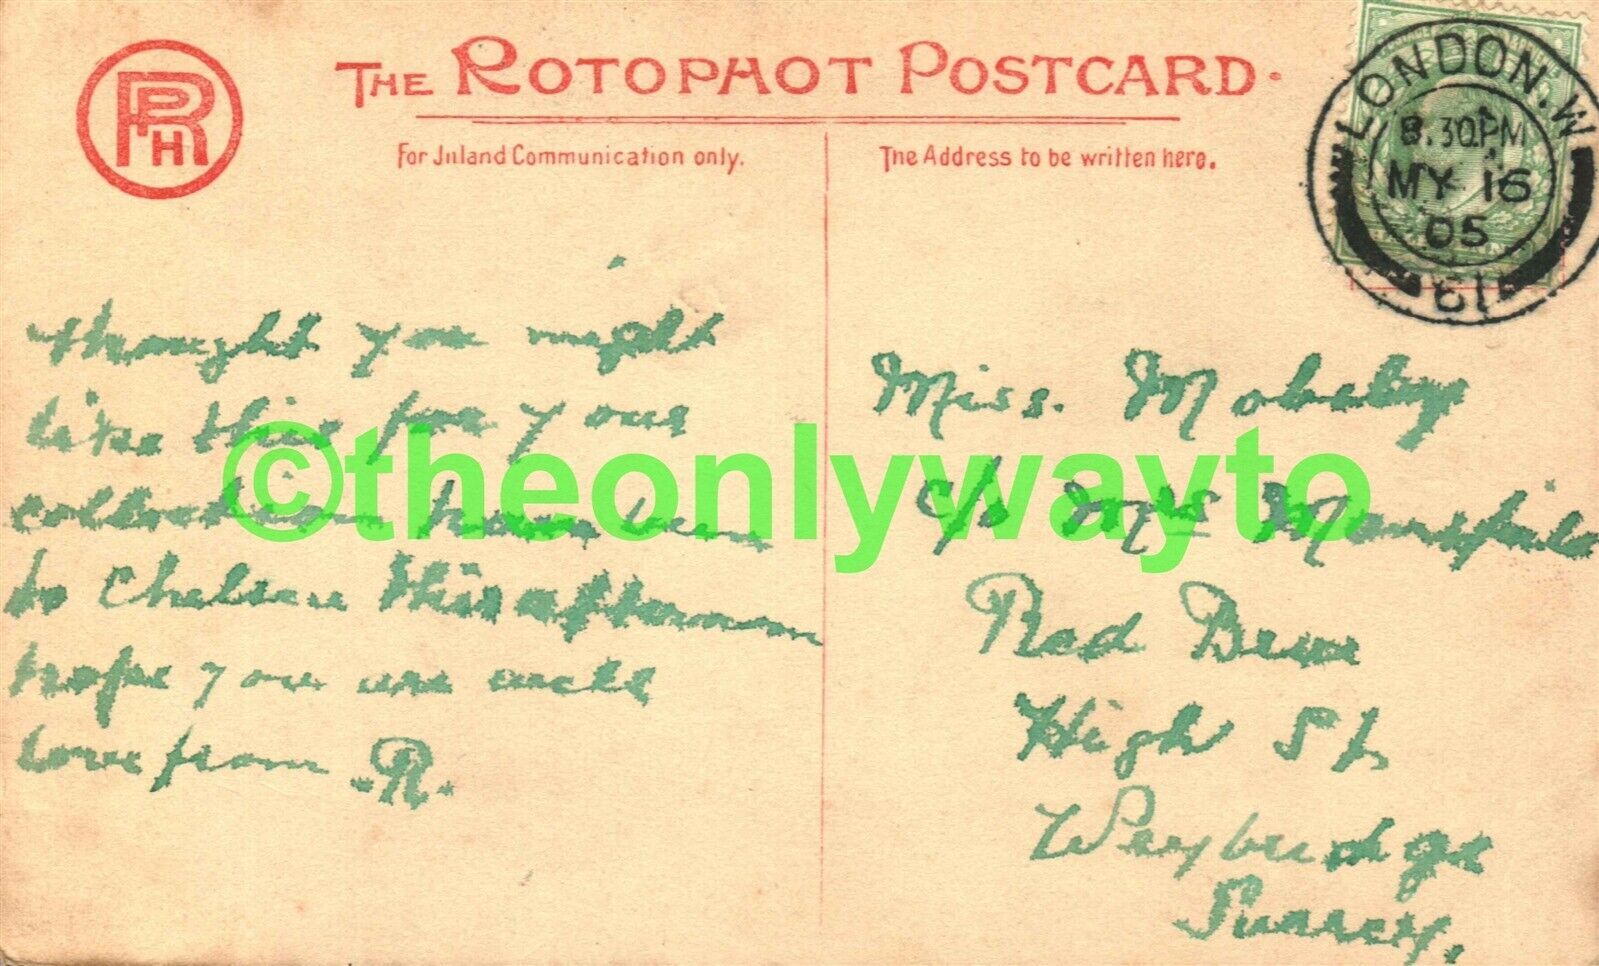 RPH
THE ROTOPHOT POSTCARD.
For Inland Communication only.
The Address to be written here.
LONDON. W
8.30PM
MY 16
05
61
thought you might
like this for your
collection have been
to Chelsea this afternoon
hope you are well
love from R.
Miss. Moberley
c/o Mrs Mansfield
Red
High St.
Weybridge
Surrey.
©theonlywayto